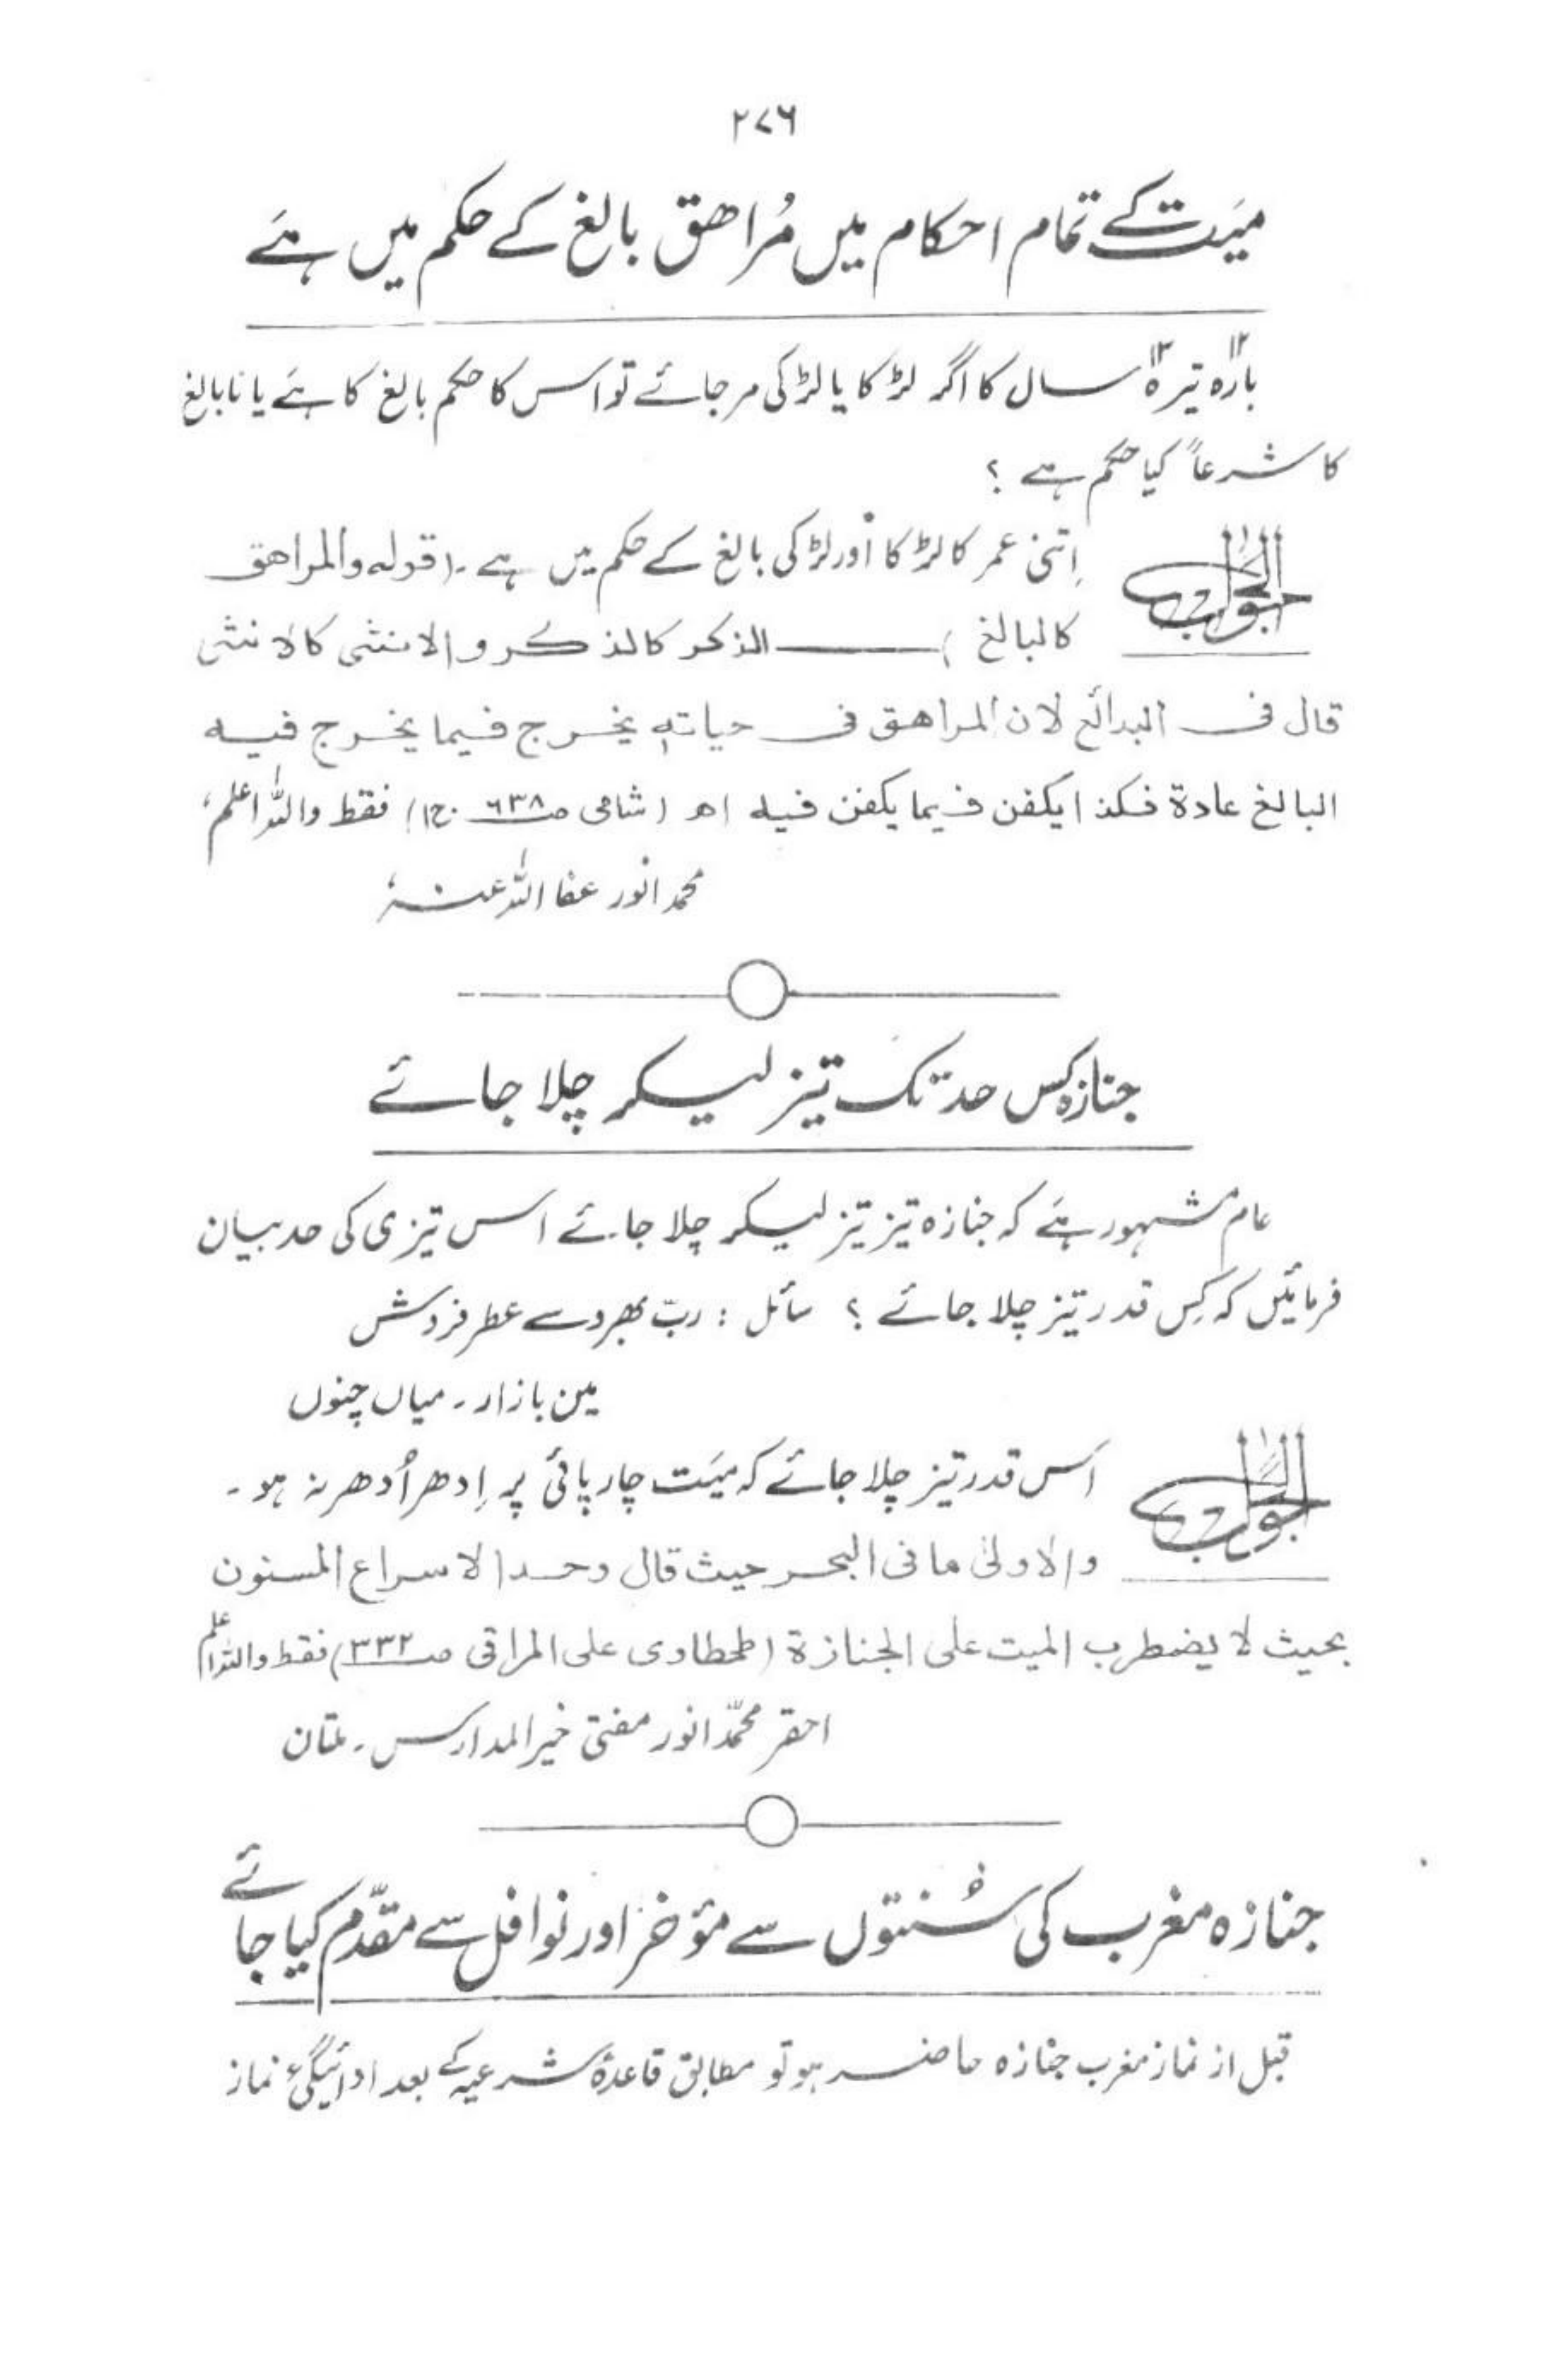 ۲۷۶
میّت کے تمام احکام میں مُراھق بالغ کے حکم میں ہے
بارہ۱۲ تیرہ۱۳ سال کا اگر لڑکا یا لڑکی مر جائے تو اس کا حکم بالغ کا ہے یا نابالغ
کا شرعاً کیا حکم ہے ؟
الجواب
اِتنی عمر کا لڑکا اور لڑکی بالغ کے حکم میں ہے ۔ (قوله والمراهق
كالبالغ ) ــــــــ الذكر كالذكر والانثى كالانثى
قال فی البدائع لان المراهق فی حیاته یخرج فیما یخرج فیه
البالغ عادة فكذا یكفن فیما یكفن فیه اھ (شامی صـ ۶۳۸ ج۱) فقط واللہ اعلم ،
محمد انور عفا اللہ عنہٗ
جنازہ کس حد تک تیز لیکر چلا جائے
عام مشہور ہے کہ جنازہ تیز تیز لیکر چلا جائے اس تیزی کی حد بیان
فرمائیں کہ کِس قدر تیز چلا جائے ؟ سائل : ربّ بھروسے عطر فروش
مین بازار ۔ میاں چنوں
الجواب
اس قدر تیز چلا جائے کہ میّت چارپائی پر اِدھر اُدھر نہ ہو ۔
والاولیٰ ما فی البحر حیث قال وحد الاسراع المسنون
بحیث لا یضطرب المیت علی الجنازة (طحطاوی علی المراقی صـ ۳۳۲) فقط واللہ اعلم
احقر محمّد انور مفتی خیر المدارس ۔ ملتان
جنازہ مغرب کی سُنتوں سے مؤخر اور نوافل سے مقدّم کیا جائے
قبل از نماز مغرب جنازہ حاضر ہو تو مطابق قاعدۂ شرعیہ کے بعد ادائیگیٔ نماز